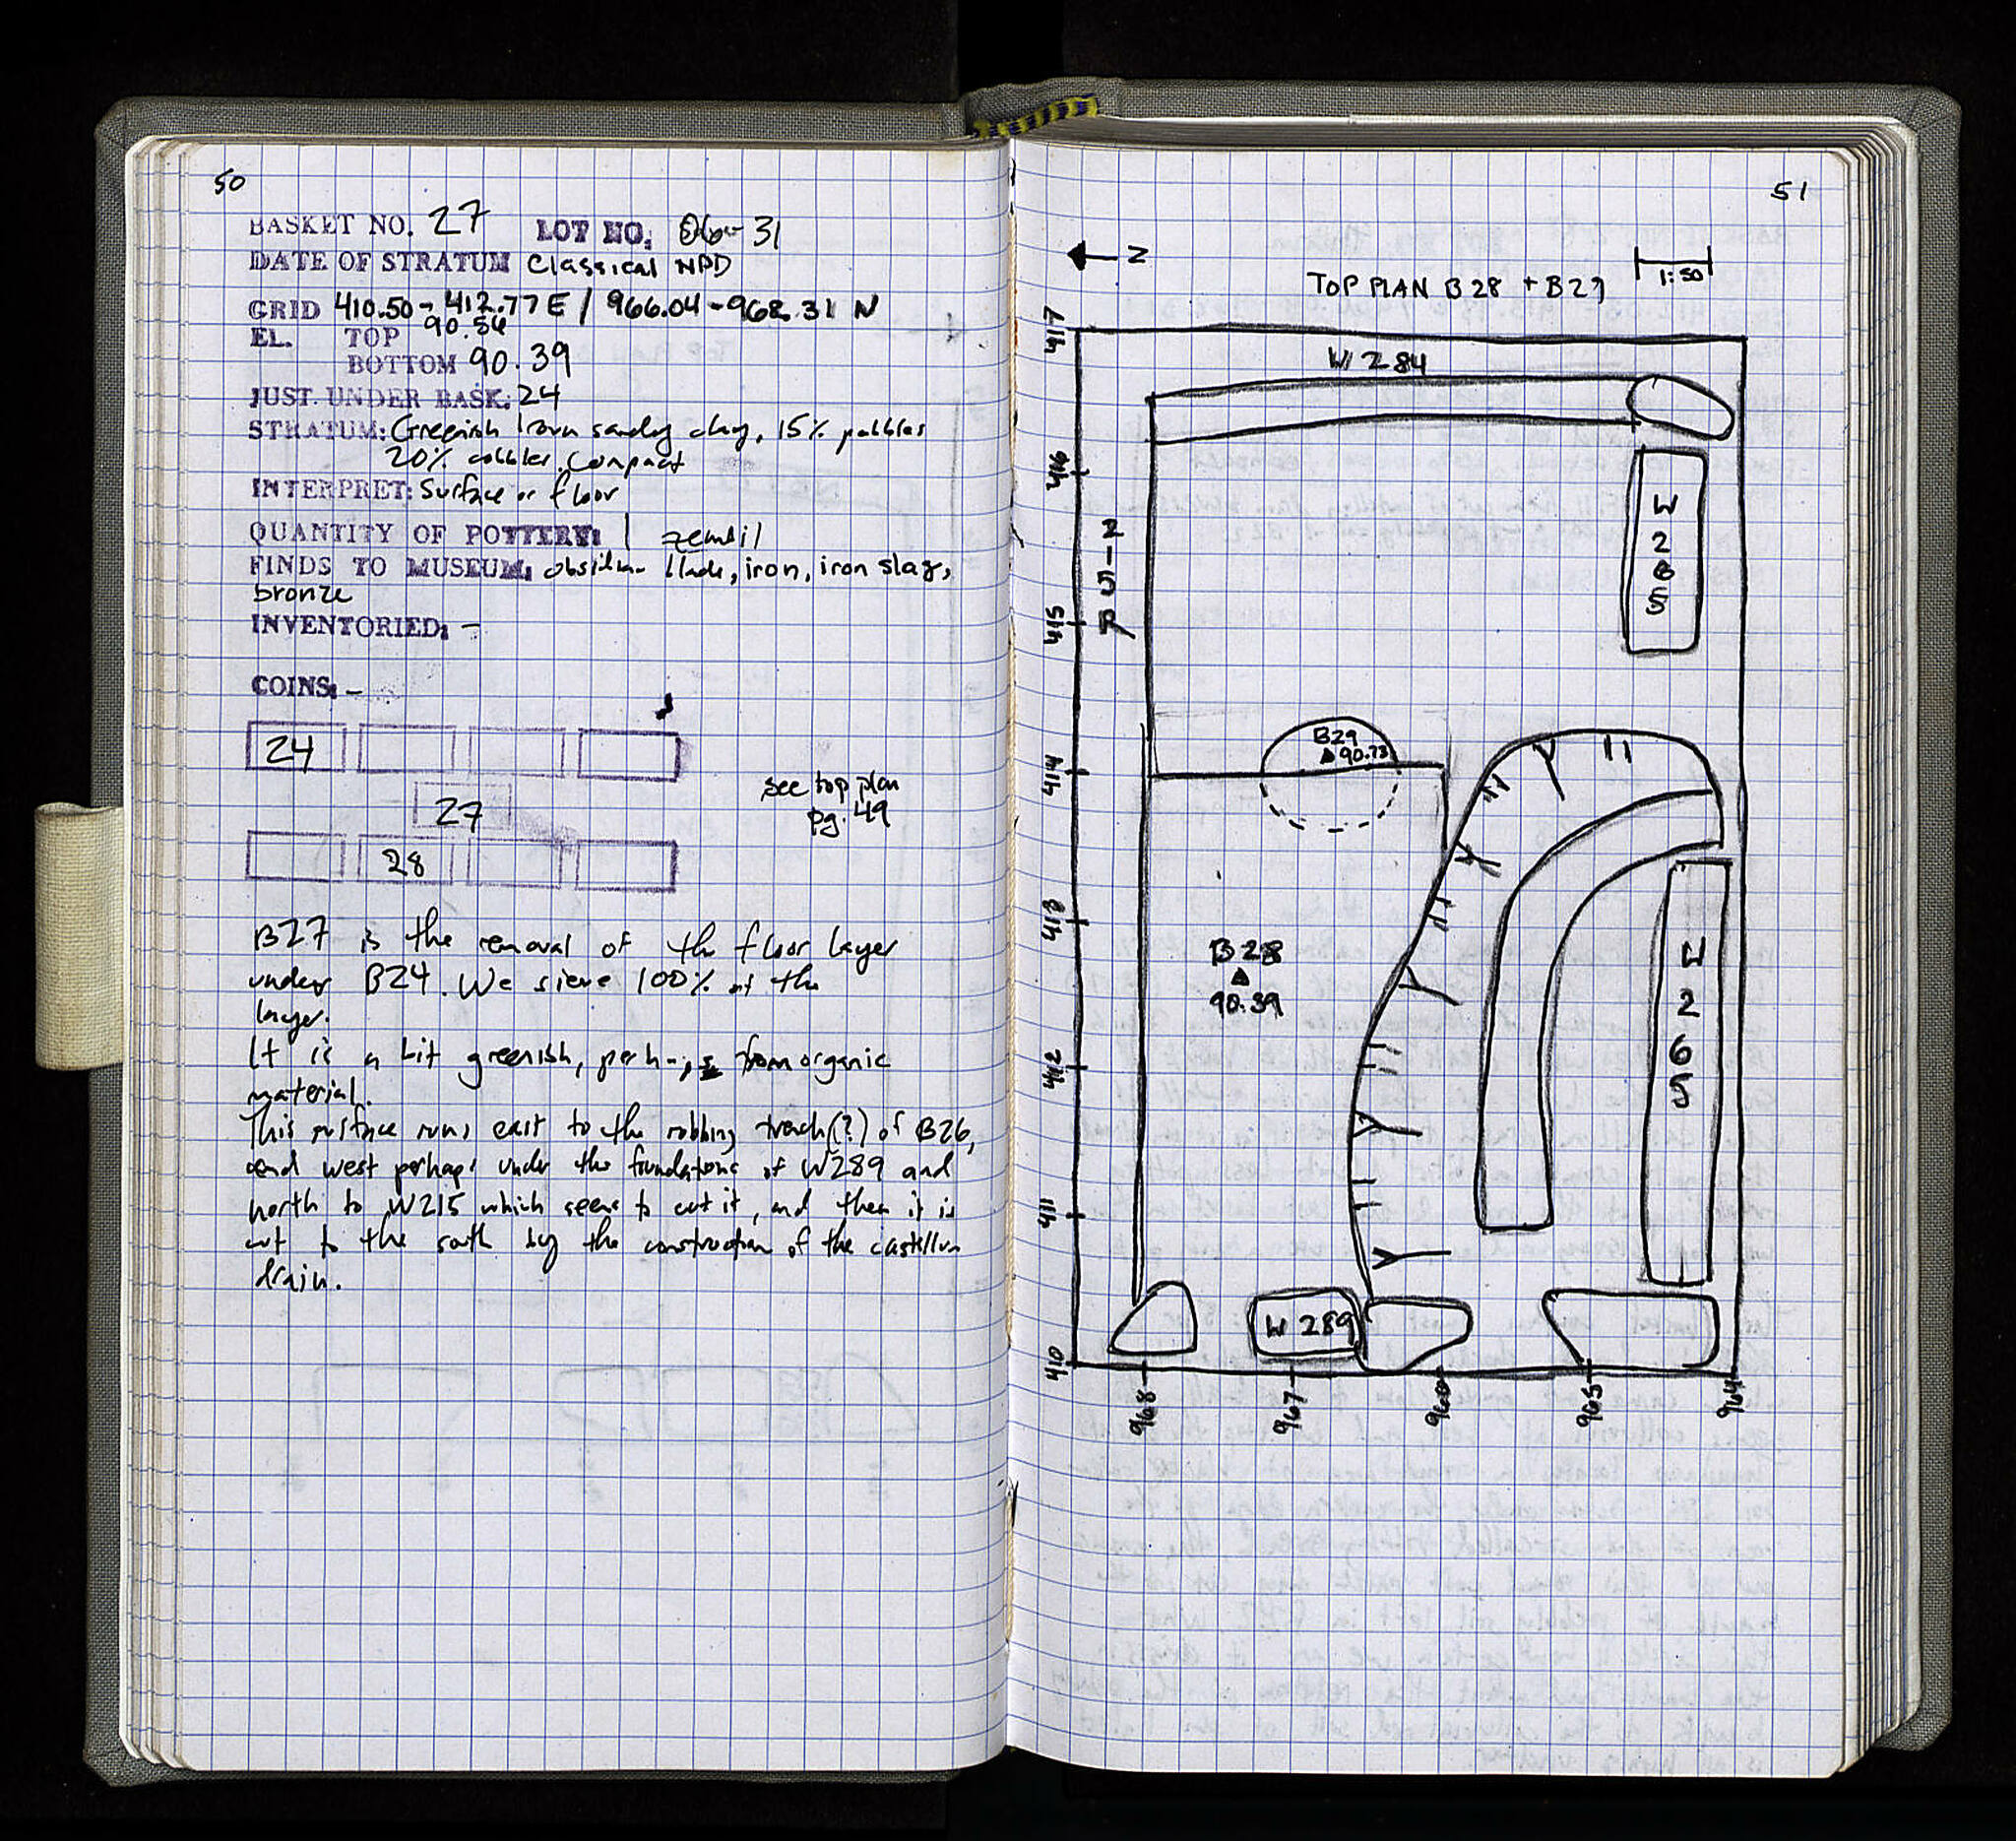 50
BASKET NO. 27 LOT NO. 06-31
DATE OF STRATUM Classical NPD
GRID 410.50-412.77 E / 966.04-968.31 N
EL. TOP 90.54
BOTTOM 90.39
JUST. UNDER BASK: 24
STRATUM: Greenish brown sandy clay, 15% pebbles
20% cobbles. Compact
INTERPRET: Surface or floor
QUANTITY OF POTTERY: 1 zembil
FINDS TO MUSEUM: obsidian blade, iron, iron slag,
bronze
INVENTORIED: -
COINS: -
24
see top plan
pg. 49
27
28
B27 is the removal of the floor layer
under B24. We sieve 100% of the
layer.
It is a bit greenish, perhaps from organic
material.
This surface runs east to the robbing trench(?) of B26,
and west perhaps under the foundations of W289 and
north to W215 which seems to cut it, and then it is
cut to the south by the construction of the castellum
drain.
51
N
TOP PLAN B28 + B29
1:50
417
W 284
416
W 265
W 215
415
B29
90.73
414
413
B28
90.39
W 265
412
411
W 289
410
968
967
966
965
964